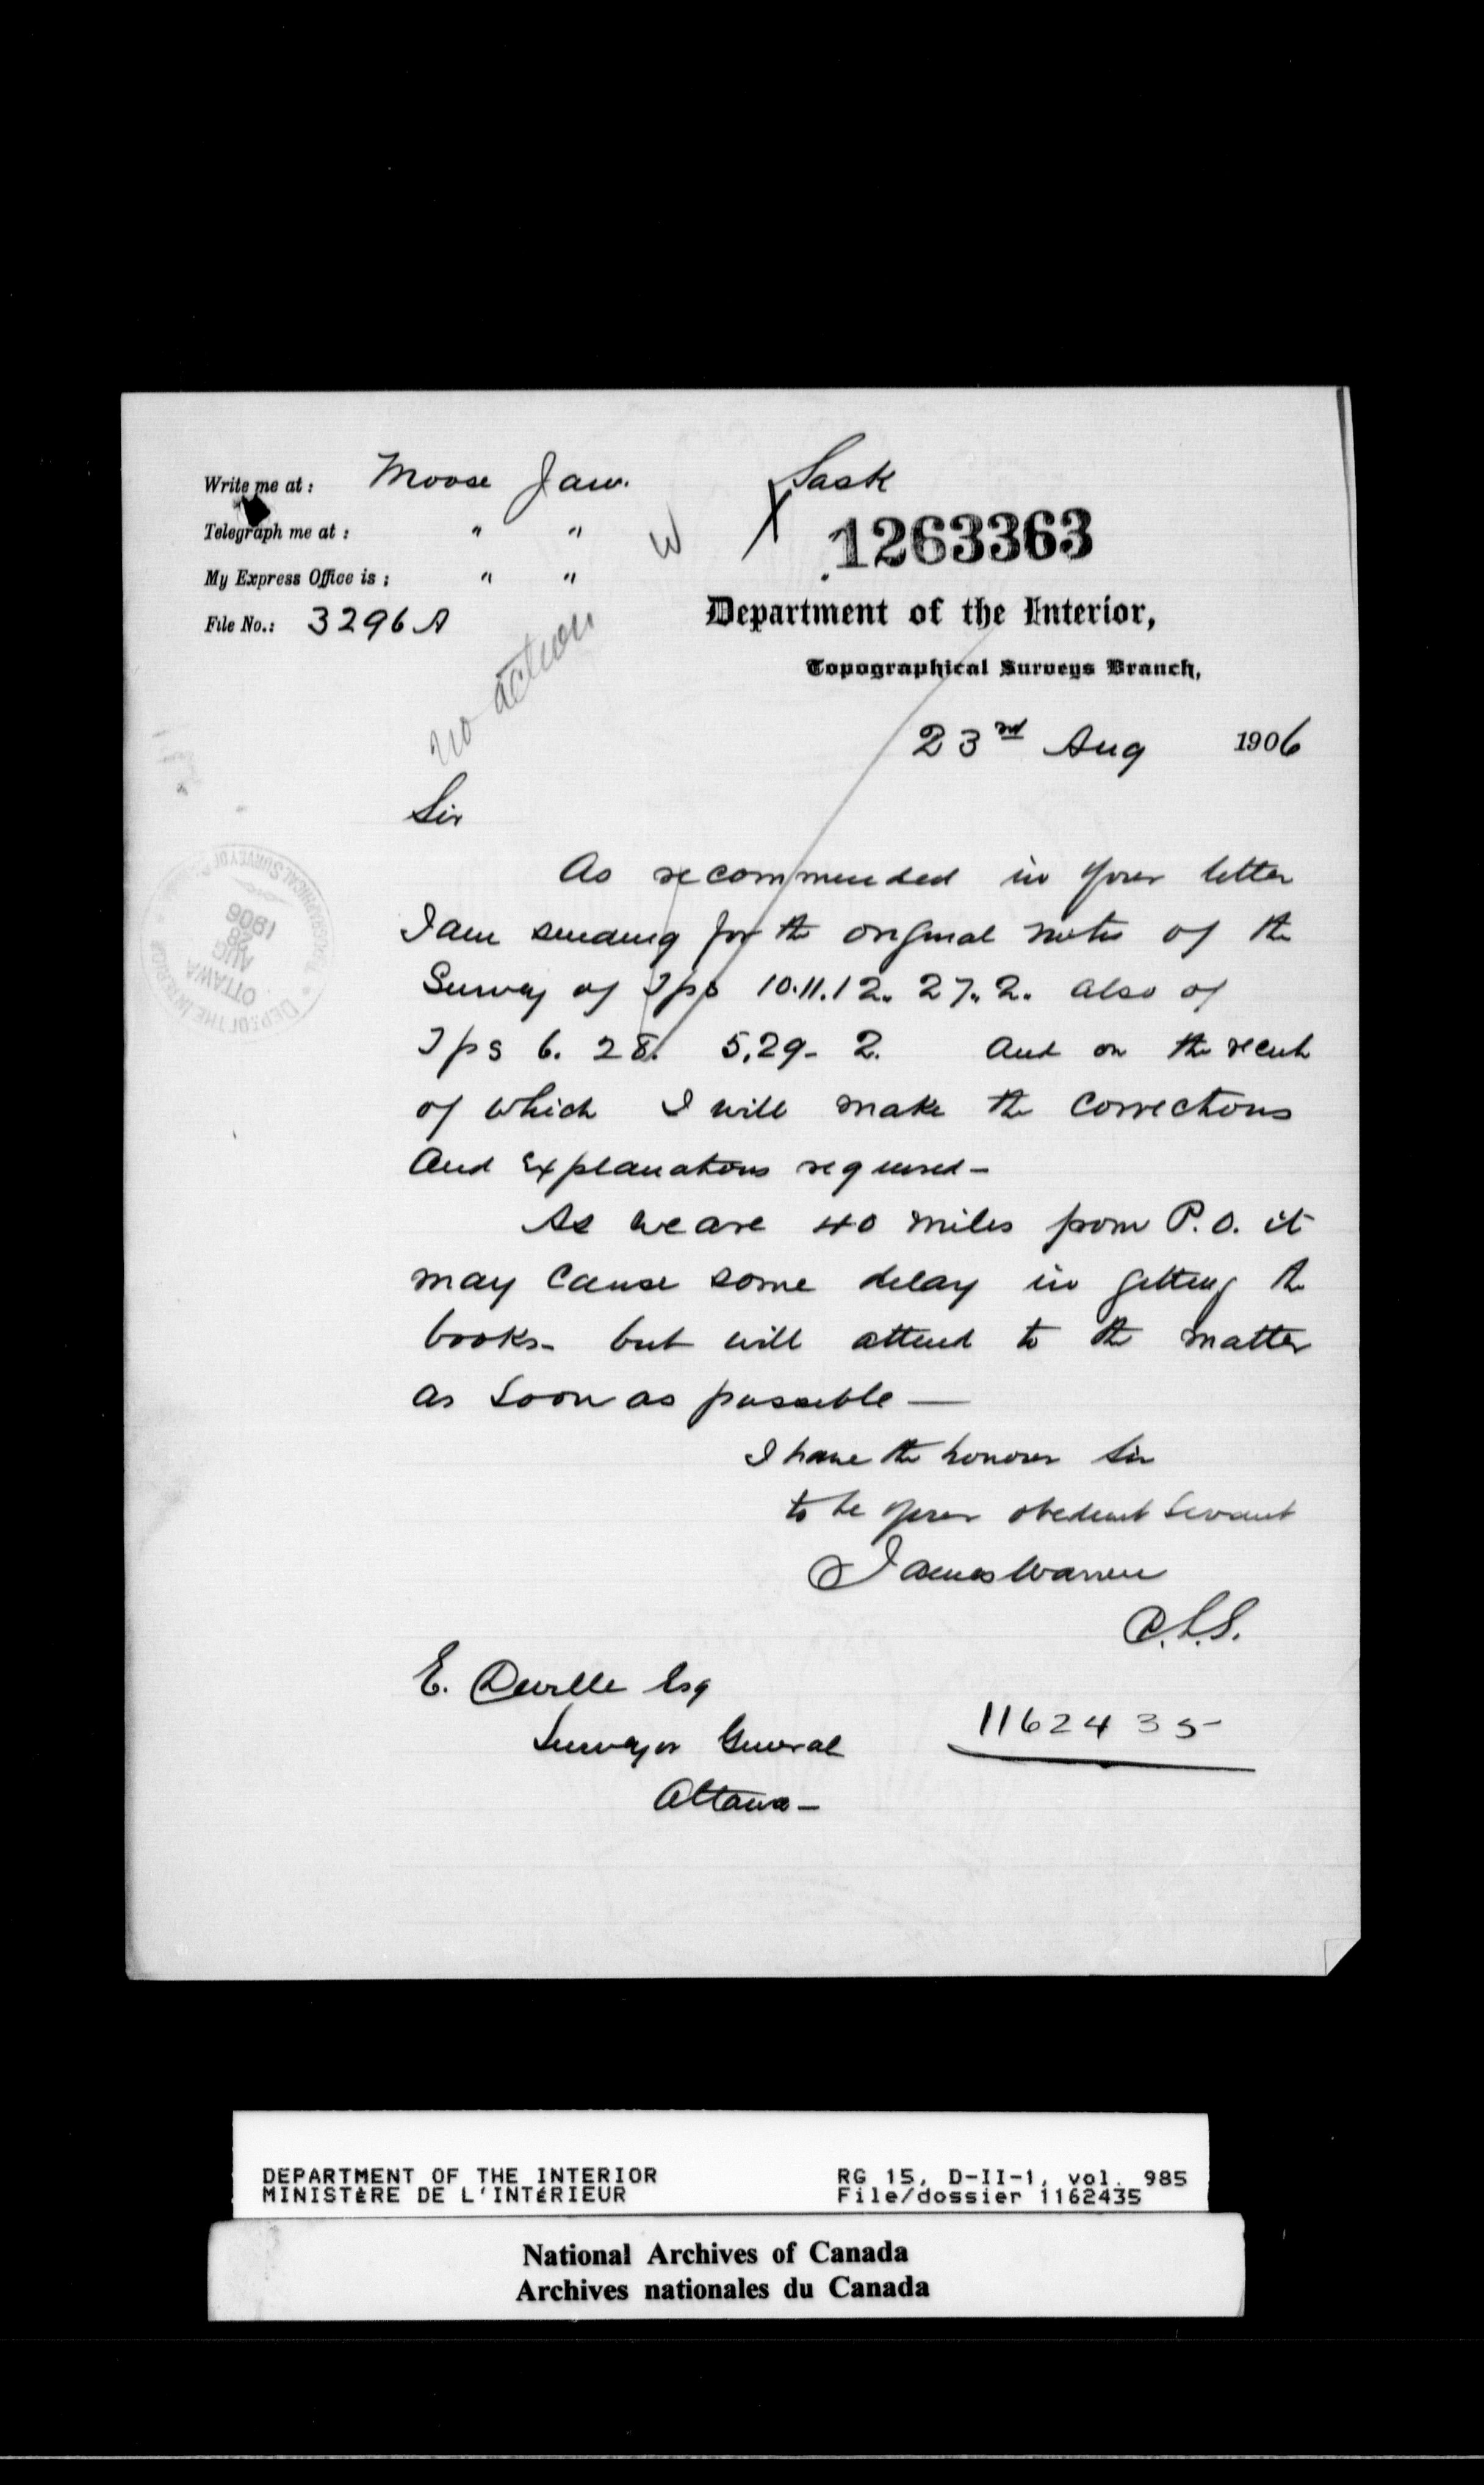 Write me at: Moose Jaw. Sask
Telegraph me at: " "
W X
1263363
My Express Office is: " "
File No.: 3296 A
Department of the Interior,
Topographical Surveys Branch,
no action
23rd Aug 1906
Sir
As recommended in your letter
I am sending for the original notes of the
Survey of Tps 10.11.12. 27. 2. also of
Tps 6. 28. 5.29- 2. and on the receit
of which I will make the corrections
and explanations required-
As we are 40 miles from P.O. it
may cause some delay in getting the
books- but will attend to the matter
as soon as possible —
I have the honour Sir
to be your obedient Servant
James Warren
D.L.S.
E. Deville Esq
Surveyor General
Ottawa-
1162435
DEP. OF THE INTERIOR
TOPOGRAPHICAL SURVEY OF
OTTAWA
AUG
28
1906
DEPARTMENT OF THE INTERIOR
MINISTÈRE DE L'INTÉRIEUR
RG 15, D-II-1, vol. 985
File/dossier 1162435
National Archives of Canada
Archives nationales du Canada